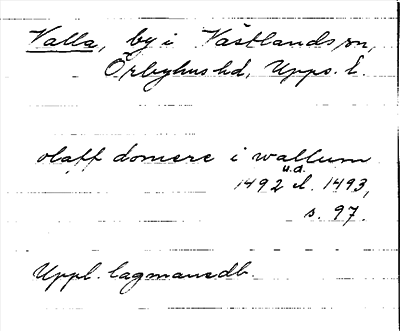 Valla, by i Västlands sn,
Örbyhus hd, Upps. l.
olaff domere i wallum
u.d.
1492 el. 1493,
s. 97.
Uppl. lagmansdb.